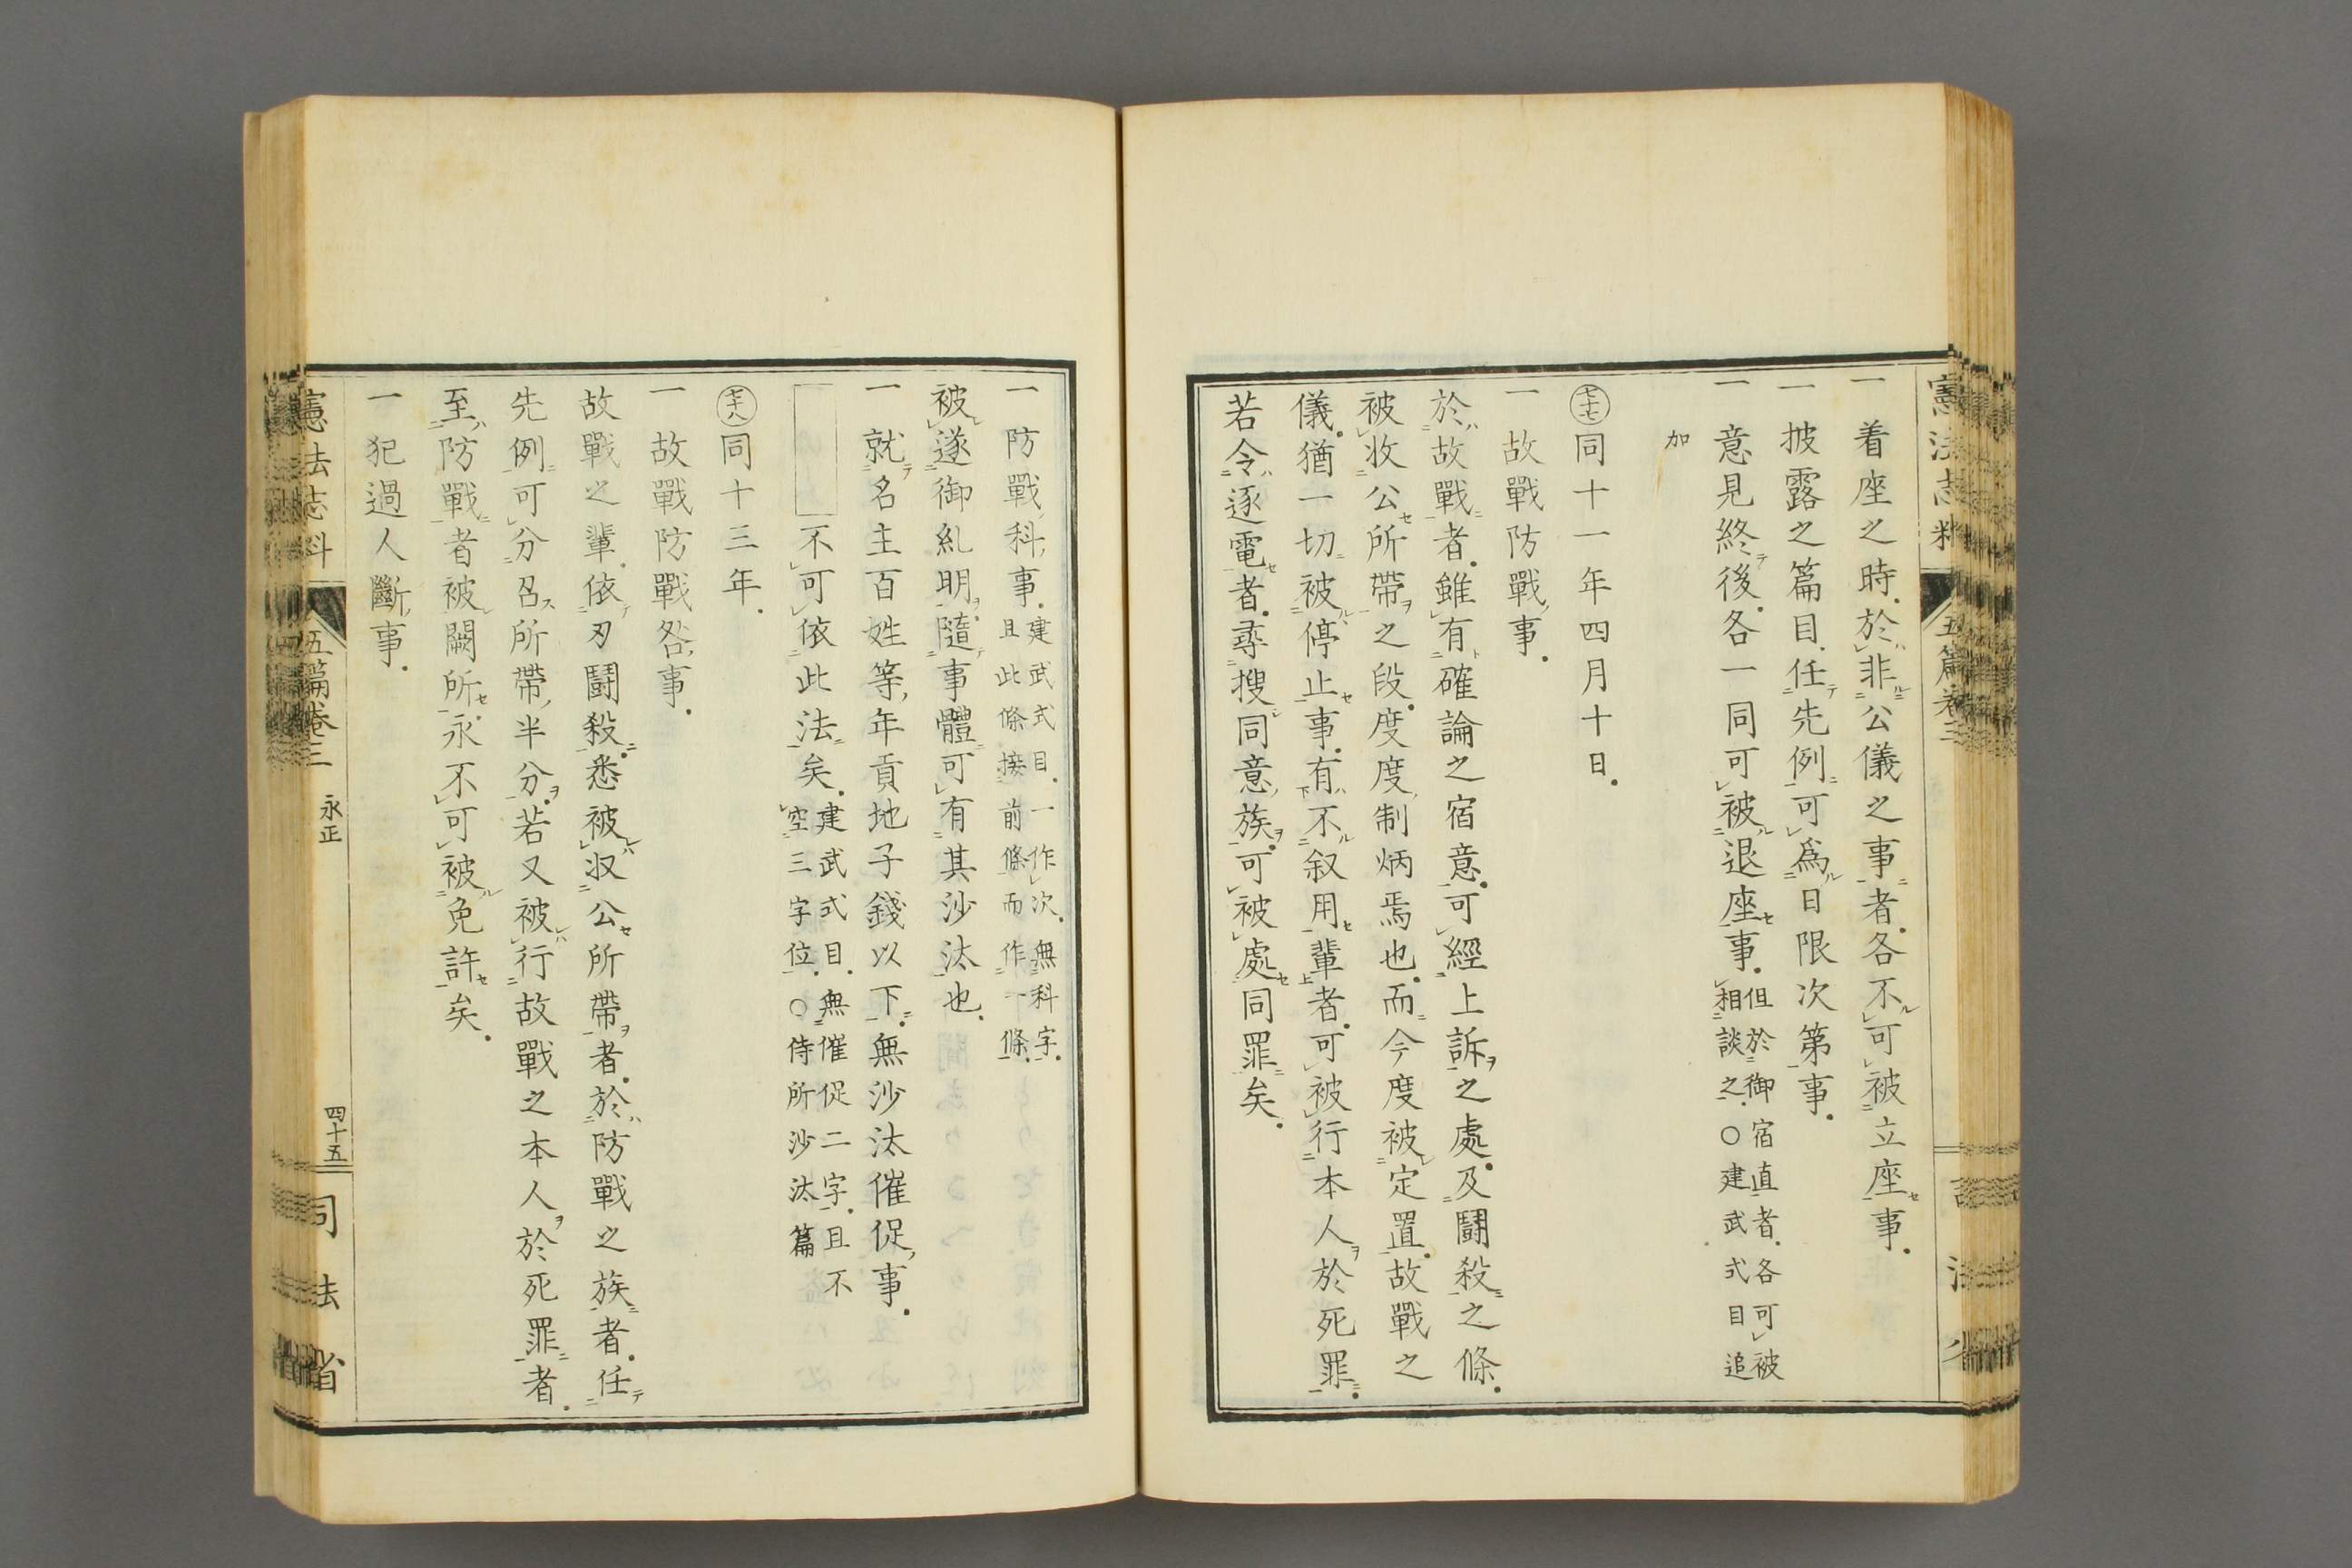 憲法志料 五篇卷三 司法省
一 着座之時於非公儀之事者各不可被立座事
一 披露之篇目任先例可爲日限次第事
一 意見終後各一同可被退座事 但於御宿直者各可被
相談之○建武式目追
加
七十七 同十一年四月十日
一 故戰防戰事
於故戰者雖有確論之宿意可經上訴之處及鬪殺之條
被收公所帶之段度度制炳焉也而今度被定置故戰之
儀猶一切被停止事有不叙用輩者可被行本人於死罪
若令逐電者尋搜同意族可被處同罪矣
一 防戰科事 建武式目一作次無科字
且此條接前條而作一條
被遂御糺明隨事體可有其沙汰也
一 就名主百姓等年貢地子錢以下無沙汰催促事
不可依此法矣 建武式目無催促二字且不
空三字位○侍所沙汰篇
七十八 同十三年
一 故戰防戰咎事
故戰之輩依刃鬪殺悉被收公所帶者於防戰之族者任
先例可分召所帶半分若又被行故戰之本人於死罪者
至防戰者被闕所永不可被免許矣
一 犯過人斷事
憲法志料 五篇卷三 永正 四十五 司法省